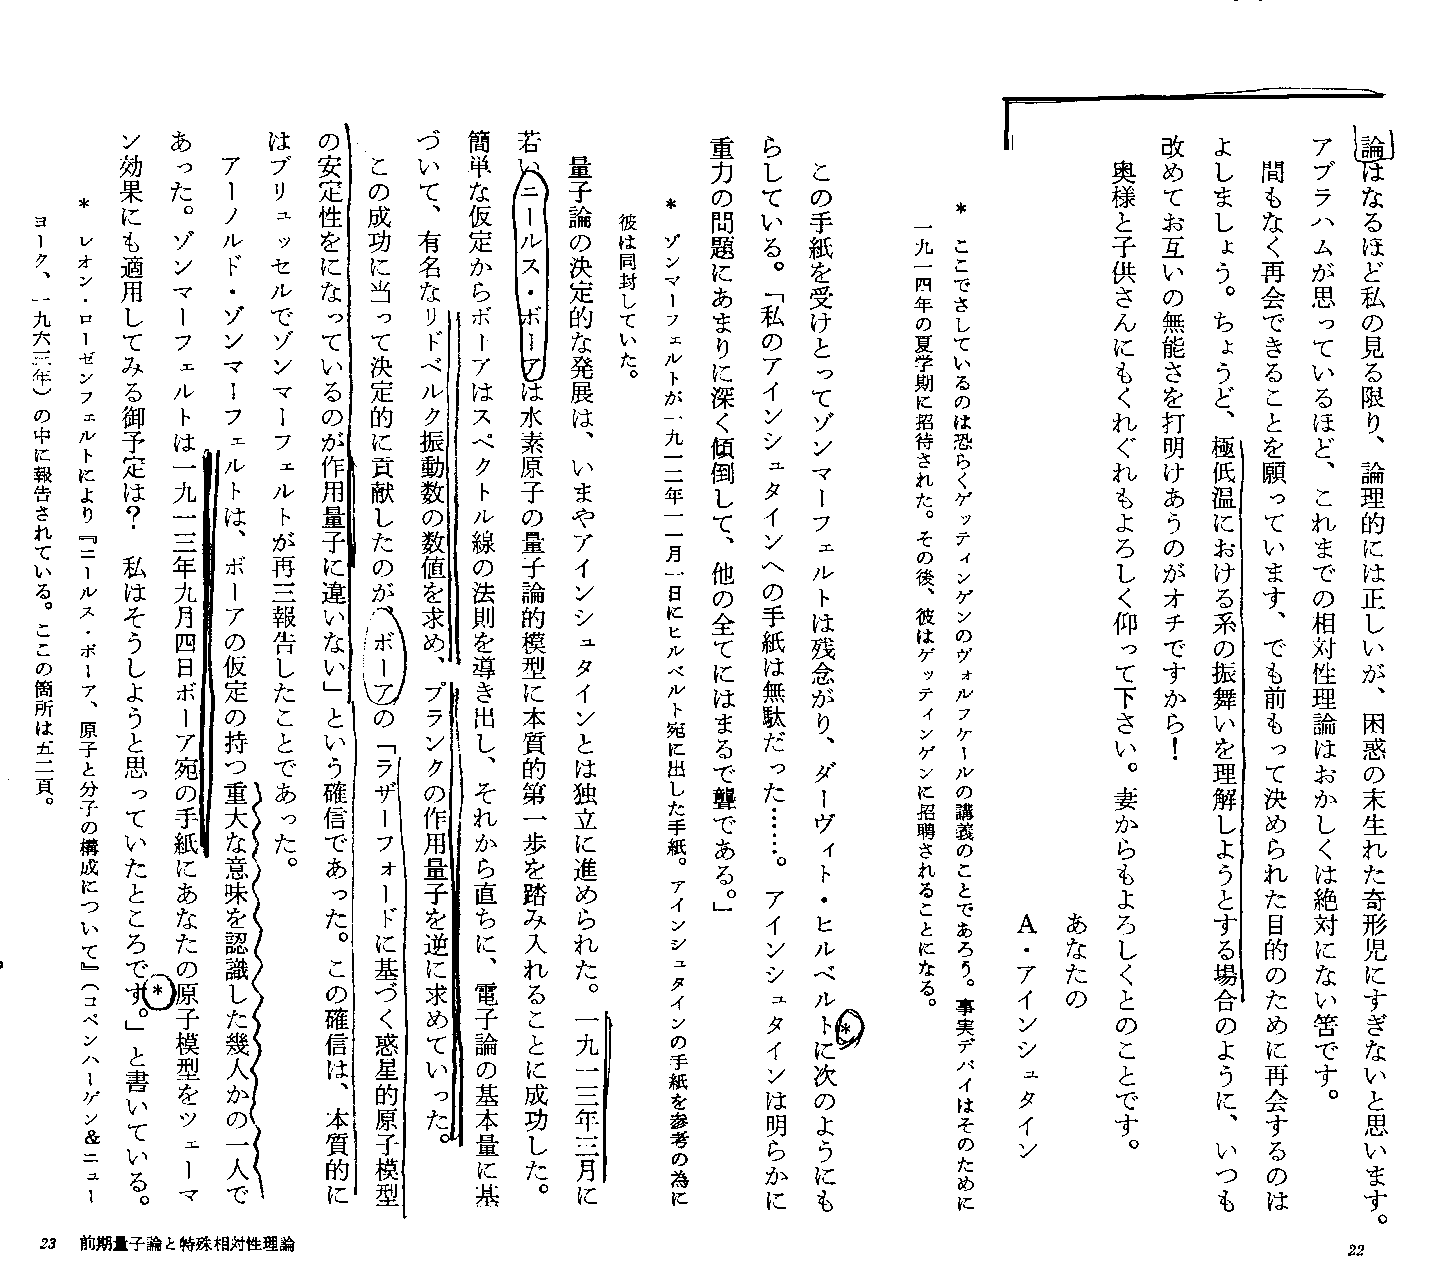 論はなるほど私の見る限り、論理的には正しいが、困惑の末生れた奇形児にすぎないと思います。
アブラハムが思っているほど、これまでの相対性理論はおかしくは絶対にない筈です。
間もなく再会できることを願っています、でも前もって決められた目的のために再会するのは
よしましょう。ちょうど、極低温における系の振舞いを理解しようとする場合のように、いつも
改めてお互いの無能さを打明けあうのがオチですから！
奥様と子供さんにもくれぐれもよろしく仰って下さい。妻からもよろしくとのことです。
あなたの
A・アインシュタイン
* ここでさしているのは恐らくゲッティンゲンのヴォルフケールの講義のことであろう。事実デバイはそのために
一九一四年の夏学期に招待された。その後、彼はゲッティンゲンに招聘されることになる。
この手紙を受けとってゾンマーフェルトは残念がり、ダーヴィト・ヒルベルト*に次のようにも
らしている。「私のアインシュタインへの手紙は無駄だった……。アインシュタインは明らかに
重力の問題にあまりに深く傾倒して、他の全てにはまるで聾である。」
* ゾンマーフェルトが一九一二年一一月一日にヒルベルト宛に出した手紙。アインシュタインの手紙を参考の為に
彼は同封していた。
量子論の決定的な発展は、いまやアインシュタインとは独立に進められた。一九一三年三月に
若いニールス・ボーアは水素原子の量子論的模型に本質的第一歩を踏み入れることに成功した。
簡単な仮定からボーアはスペクトル線の法則を導き出し、それから直ちに、電子論の基本量に基
づいて、有名なリドベルク振動数の数値を求め、プランクの作用量子を逆に求めていった。
この成功に当って決定的に貢献したのが、ボーアの「ラザーフォードに基づく惑星的原子模型
の安定性をになっているのが作用量子に違いない」という確信であった。この確信は、本質的に
はブリュッセルでゾンマーフェルトが再三報告したことであった。
アーノルド・ゾンマーフェルトは、ボーアの仮定の持つ重大な意味を認識した幾人かの一人で
あった。ゾンマーフェルトは一九一三年九月四日ボーア宛の手紙にあなたの原子模型をツェーマ
ン効果にも適用してみる御予定は？　私はそうしようと思っていたところです。」*と書いている。
* レオン・ローゼンフェルトにより『ニールス・ボーア、原子と分子の構成について』（コペンハーゲン＆ニュー
ヨーク、一九六三年）の中に報告されている。ここの箇所は五二頁。
23 前期量子論と特殊相対性理論
22